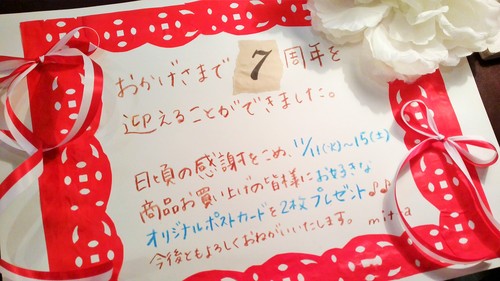 おかげさまで7周年を
迎えることができました。
日頃の感謝をこめ、11/11(火)~15(土)
商品お買い上げの皆様にお好きな
オリジナルポストカードを2枚プレゼント♪♪
今後ともよろしくおねがいいたします。